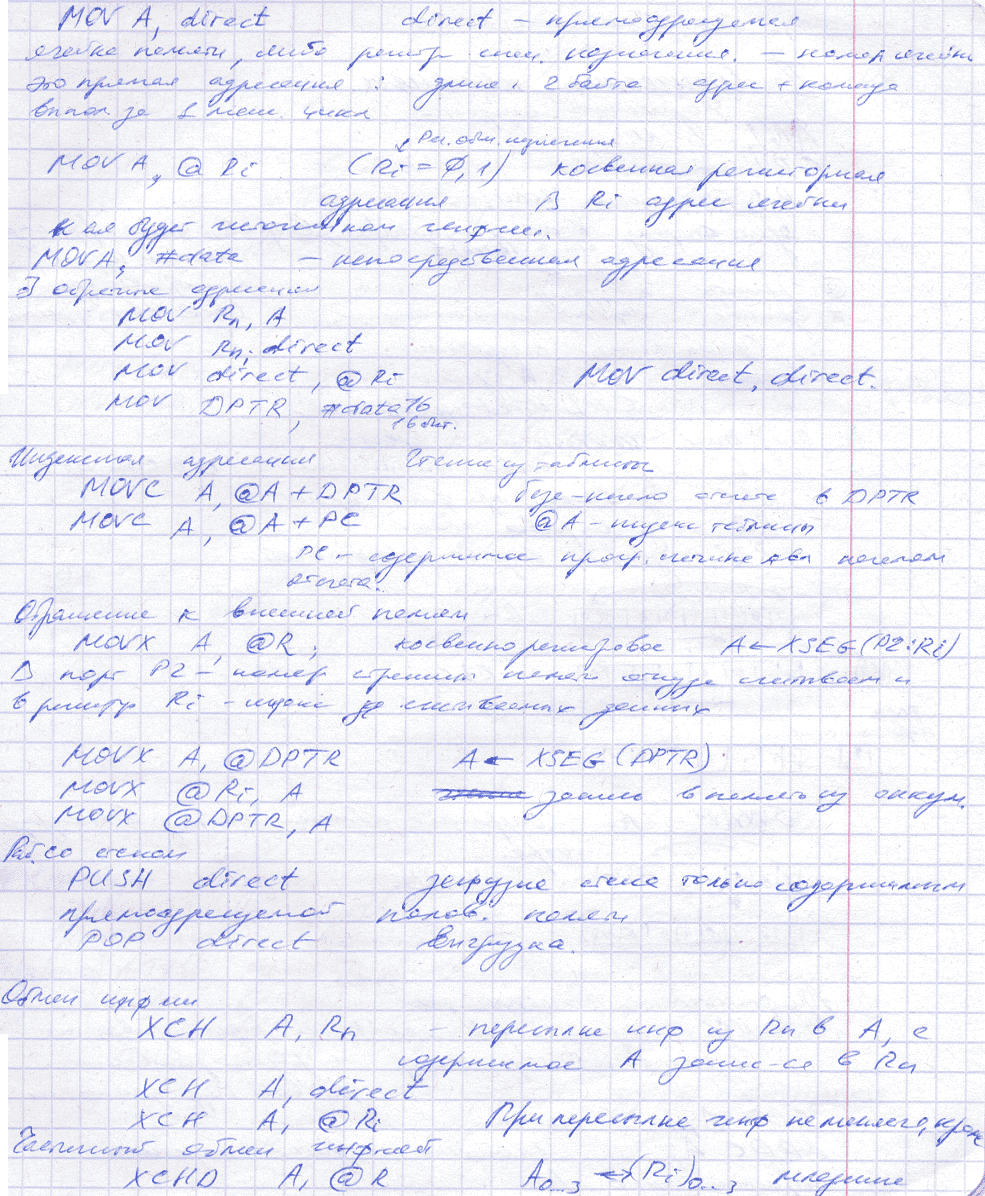 MOV A, direct direct – прямоадресуемая
ячейка памяти, либо регистр спец. назначения. – номер ячейки
это прямая адресация: длина: 2 байта адрес + команда
выпол. за 1 маш. цикл
Рег. общ. назначения
MOV A, @ Ri (Ri = 0, 1) косвенная регисторная
адресация В Ri адрес ячейки
кая будет источником информ.
MOV A, #data – непосредственная адресация
обратные адресации
MOV Rn, A
MOV Rn, direct
MOV direct, @Ri MOV direct, direct.
MOV DPTR, #data16
16 бит.
Индексная адресация Чтение из таблицы
MOVC A, @A + DPTR база – начало отсчета в DPTR
MOVC A, @A + PC @A – индекс таблицы
PC – содержимое прогр. счетчика явл началом
отсчета.
Обращение к внешней памяти
MOVX A, @R; косвеннорегистровое A ← XSEG (P2:Ri)
В порт P2 – номер страницы памяти откуда считываем и
в регистр Ri – индекс считываемых данных
MOVX A, @DPTR A ← XSEG (DPTR)
MOVX @Ri, A запись в память из аккум.
MOVX @DPTR, A
Раб. со стеком
PUSH direct загрузка стека только содержимым
прямоадресуемой полов. памяти
POP direct Выгрузка.
Обмен инф ии
XCH A, Rn – пересылка инф из Rn в A, а
содержимое A запис-ся в Rn
XCH A, direct
XCH A, @Ri При пересылке инф не меняется, кроме
Частичный обмен информацией
XCHD A, @R A0...3 ↔ (Ri)0...3 младшие